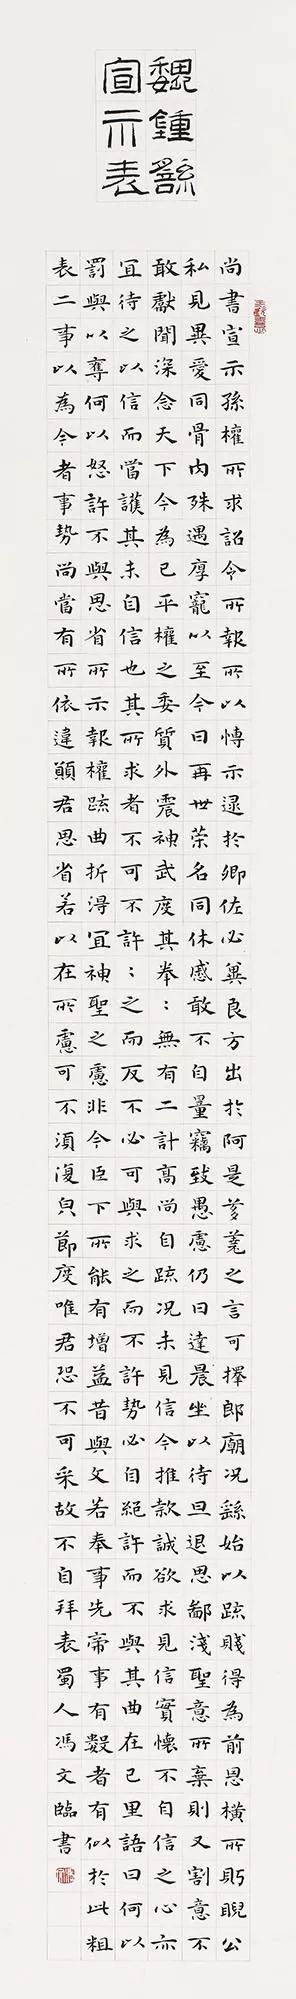 魏鍾繇
宣示表
尚書宣示孫權所求詔令所報所以博示逮於卿佐必冀良方出於阿是芻蕘之言可擇郎廟况繇始以疏賤得為前恩橫所眄睨公
私見異愛同骨肉殊遇厚寵以至今日再世榮名同休慼敢不自量竊致愚慮仍日達晨坐以待旦退思鄙淺聖意所棄則又割意不
敢獻聞深念天下今為已平權之委質外震神武度其拳:無有二計高尚自疏况未見信今推款誠欲求見信實懷不自信之心亦
宜待之以信而當護其未自信也其所求者不可不許:之而反不必可與求之而不許勢必自絕許而不與其曲在己里語曰何以
罰與以奪何以怒許不與思省所示報權疏曲折得宜神聖之慮非今臣下所能有增益昔與文若奉事先帝事有數者有似於此粗
表二事以為今者事勢尚當有所依違願君思省若以在所慮可不須復皃節度唯君恐不可采故不自拜表蜀人馮文臨書